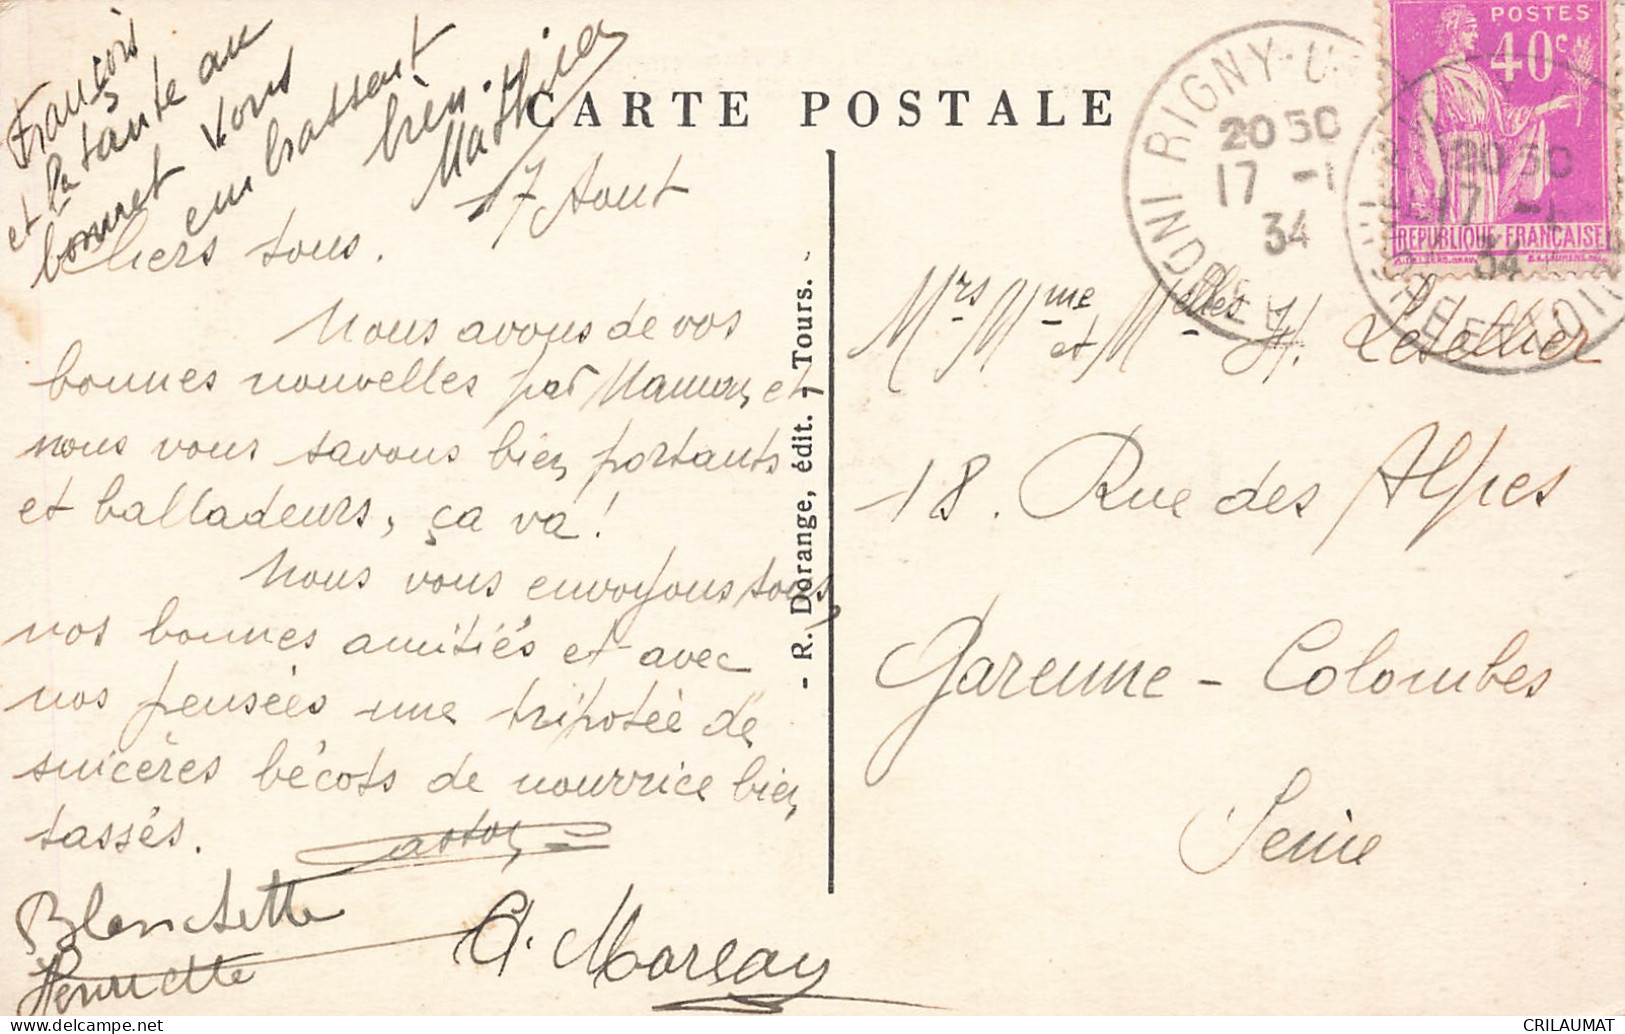 François
et la tante au
bonnet vous
embrassent
bien.
CARTE POSTALE
17 Aout
Chers tous.
Nous avons de vos
bonnes nouvelles par Maman, et
nous vous savons bien portants
et balladeurs, ça va!
Nous vous envoyons tous,
nos bonnes amitiés et avec
nos pensées une tripotée de
sincères bécots de nourrice bien
tassés.
Gaston
Blanchette
Henriette
A. Moreau
- R. Dorange, édit. 7 Tours.
POSTES
40c
REPUBLIQUE FRANÇAISE
RIGNY-U
INDRE
ET LOIRE
20 50
17 -1
34
20 50
17 -1
34
Mrs Mme et Melles H. Letellier
18. Rue des Alpes
Garenne - Colombes
Seine
CRILAUMAT